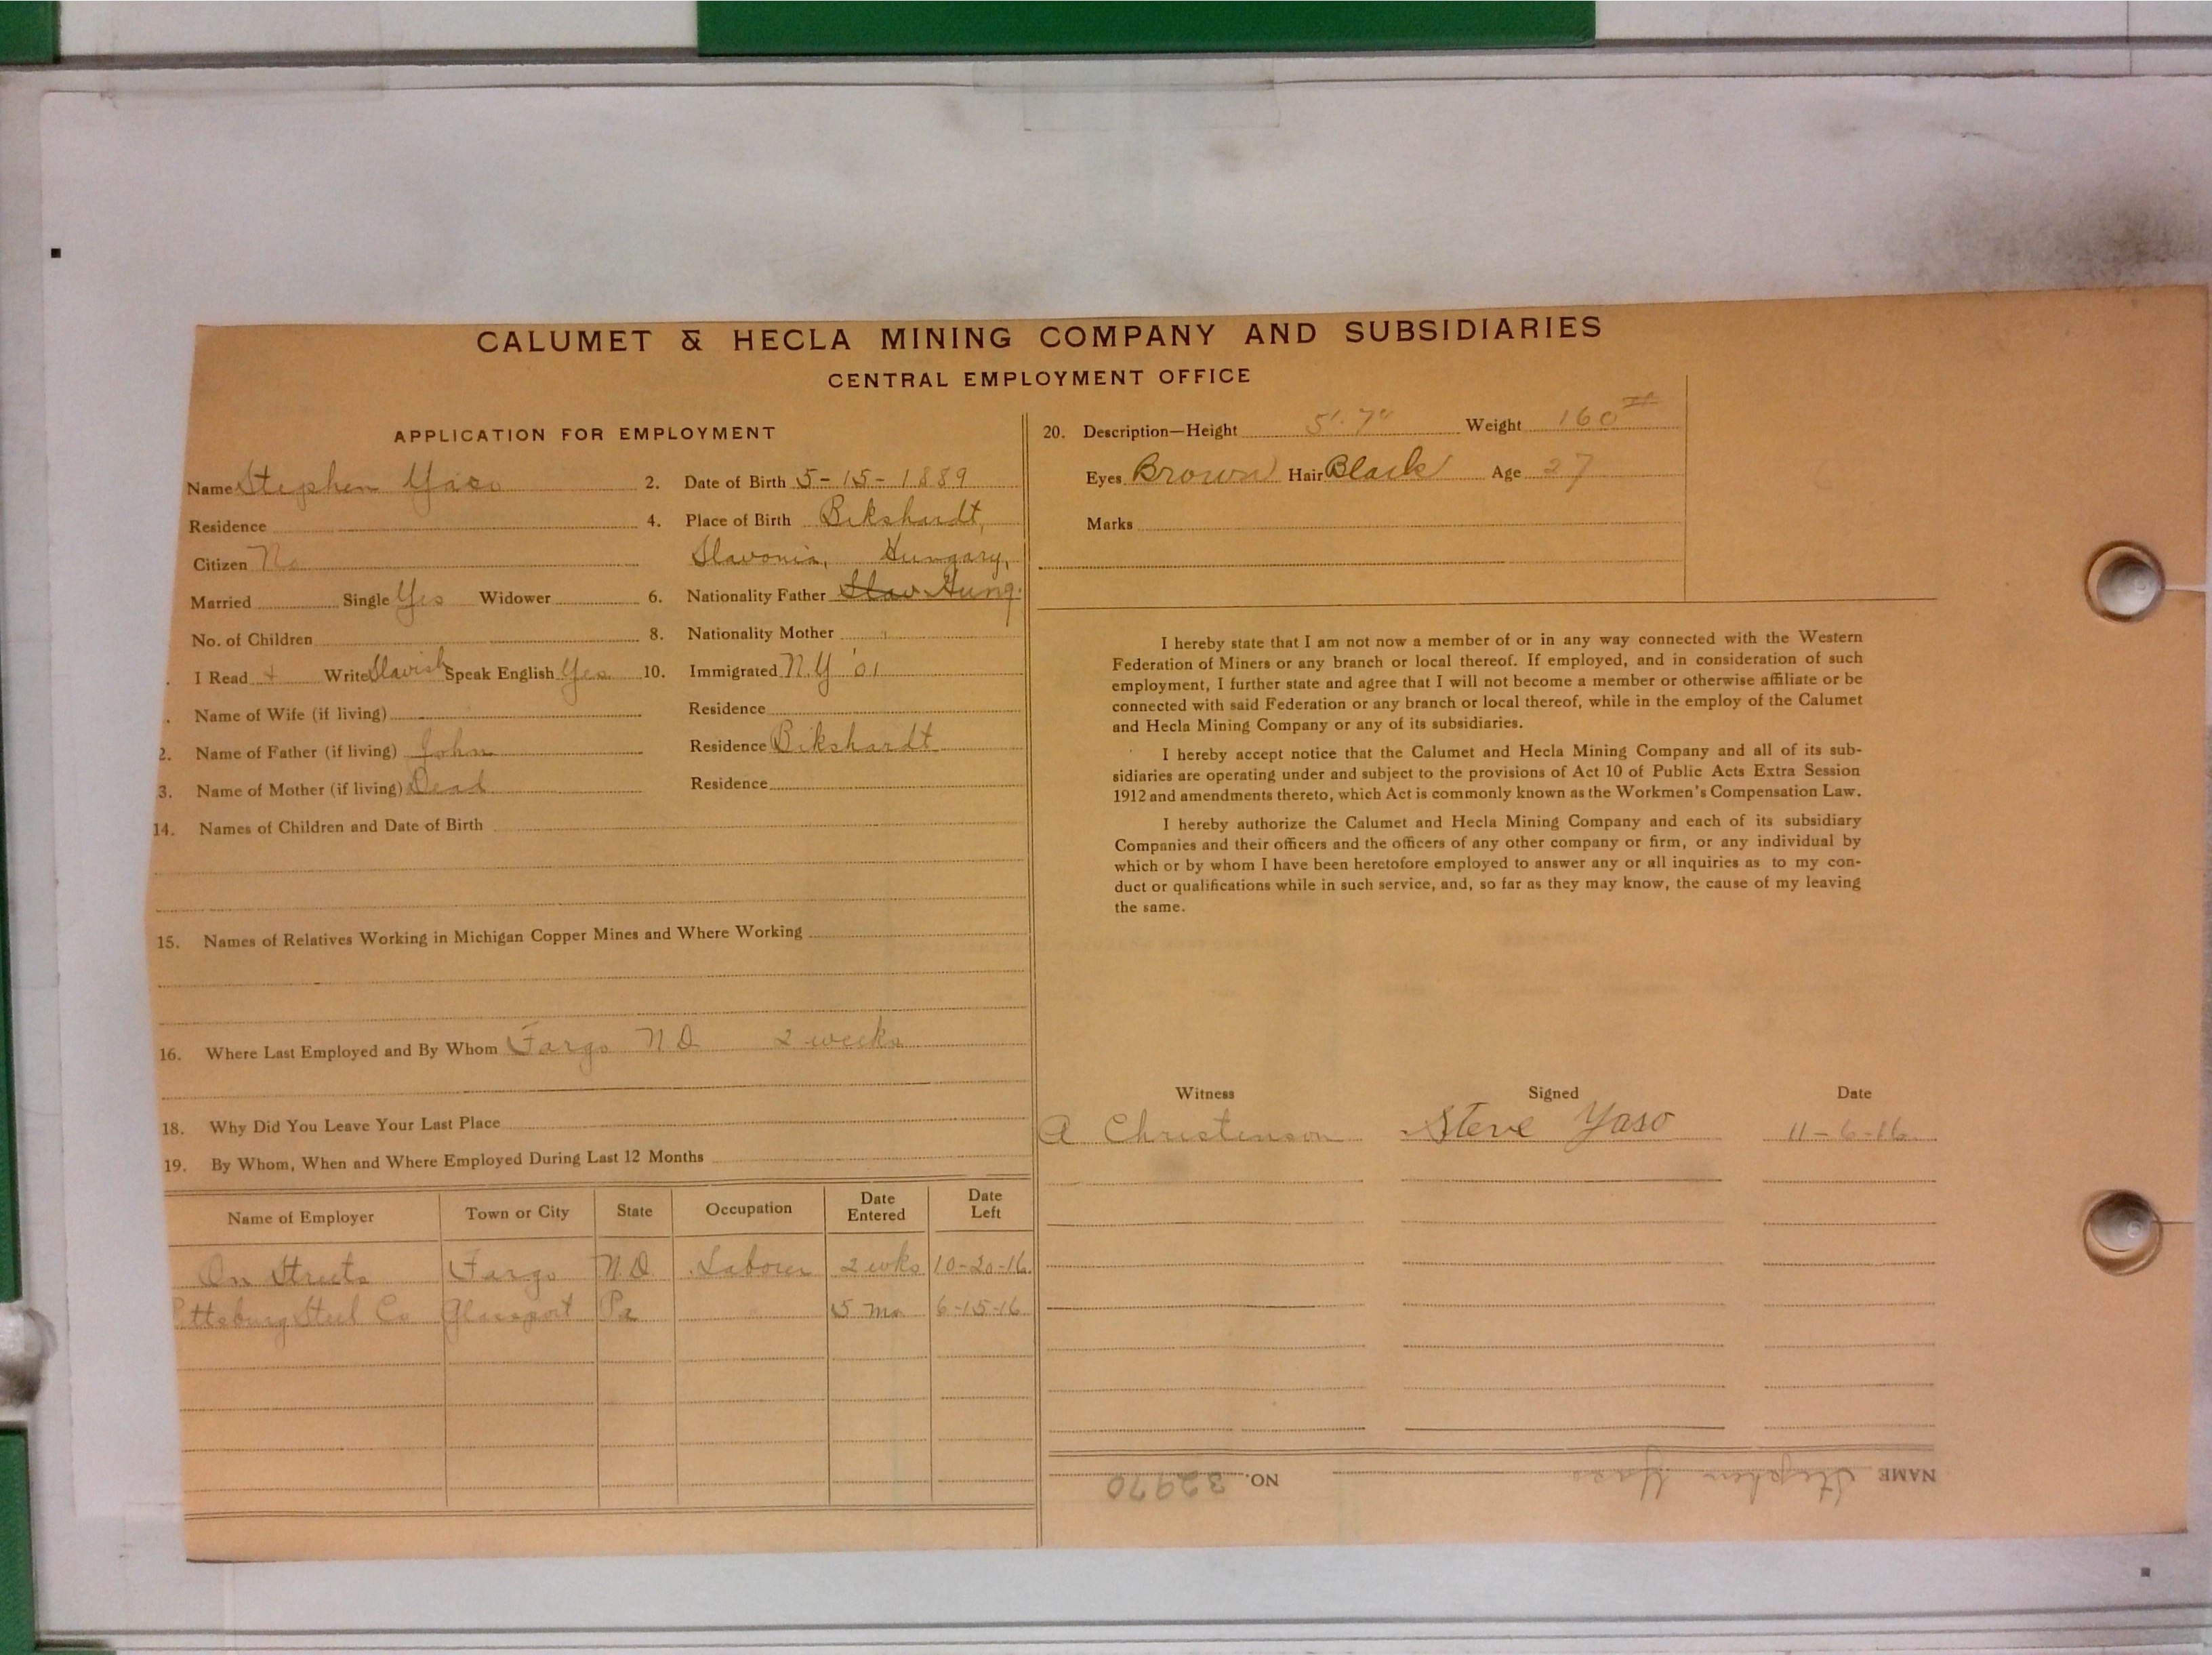 CALUMET & HECLA MINING COMPANY AND SUBSIDIARIES
CENTRAL EMPLOYMENT OFFICE
APPLICATION FOR EMPLOYMENT
Name Stephen Yaso 2. Date of Birth 5-15-1889
Residence 4. Place of Birth Bikshardt,
Citizen No Slavonia, Hungary,
Married Single Yes Widower 6. Nationality Father Slav Hung.
No. of Children 8. Nationality Mother "
I Read + Write Slavish Speak English Yes 10. Immigrated N.Y '01
Name of Wife (if living) Residence
2. Name of Father (if living) John Residence Bikshardt
3. Name of Mother (if living) Dead Residence
14. Names of Children and Date of Birth
15. Names of Relatives Working in Michigan Copper Mines and Where Working
16. Where Last Employed and By Whom Fargo N D 2 weeks
18. Why Did You Leave Your Last Place
19. By Whom, When and Where Employed During Last 12 Months
Name of Employer Town or City State Occupation Date Entered Date Left
On Streets Fargo N.D. Laborer 2 wks 10-20-16
Pittsburg Steel Co Glassport Pa " 5 mo 6-15-16
20. Description—Height 5'.7" Weight 160#
Eyes Brown Hair Black Age 27
Marks
I hereby state that I am not now a member of or in any way connected with the Western
Federation of Miners or any branch or local thereof. If employed, and in consideration of such
employment, I further state and agree that I will not become a member or otherwise affiliate or be
connected with said Federation or any branch or local thereof, while in the employ of the Calumet
and Hecla Mining Company or any of its subsidiaries.
I hereby accept notice that the Calumet and Hecla Mining Company and all of its sub-
sidiaries are operating under and subject to the provisions of Act 10 of Public Acts Extra Session
1912 and amendments thereto, which Act is commonly known as the Workmen's Compensation Law.
I hereby authorize the Calumet and Hecla Mining Company and each of its subsidiary
Companies and their officers and the officers of any other company or firm, or any individual by
which or by whom I have been heretofore employed to answer any or all inquiries as to my con-
duct or qualifications while in such service, and, so far as they may know, the cause of my leaving
the same.
Witness Signed Date
A Christenson Steve Yaso 11-6-16.
NAME Stephen Yaso NO. 32970